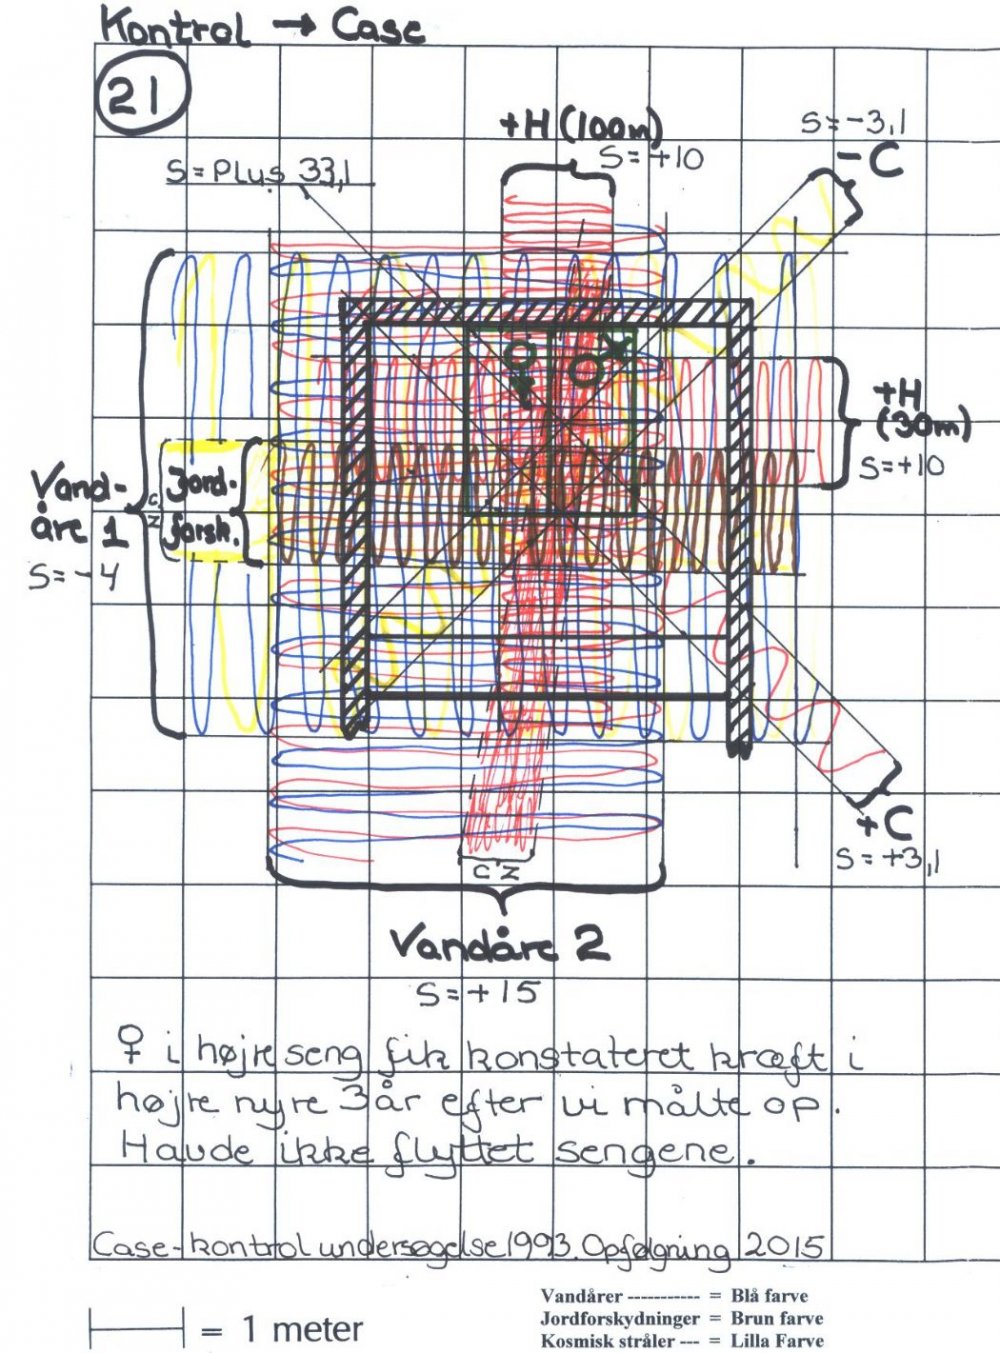 Kontrol → Case
21
+H (100m)
S=+10
S=-3,1
-C
S=Plus 33,1
+H
(30m)
S=+10
Vand-
åre 1
S=-4
CZ
Jord-
forsk.
+C
S=+3,1
CZ
Vandåre 2
S=+15
♀ i højre seng fik konstateret kræft i
højre nyre 3 år efter vi målte op.
Havde ikke flyttet sengene.
Case-kontrol undersøgelse 1993. Opfølgning 2015
= 1 meter
Vandårer ----------- = Blå farve
Jordforskydninger = Brun farve
Kosmisk stråler --- = Lilla Farve